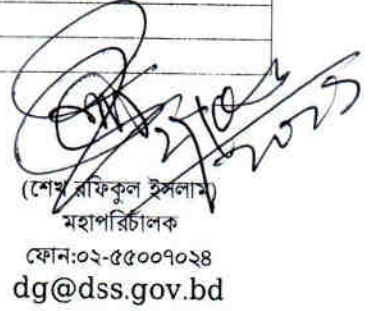 (শেখ রফিকুল ইসলাম)
মহাপরিচালক
ফোন:০২-৫৫০০৭০২৪
dg@dss.gov.bd